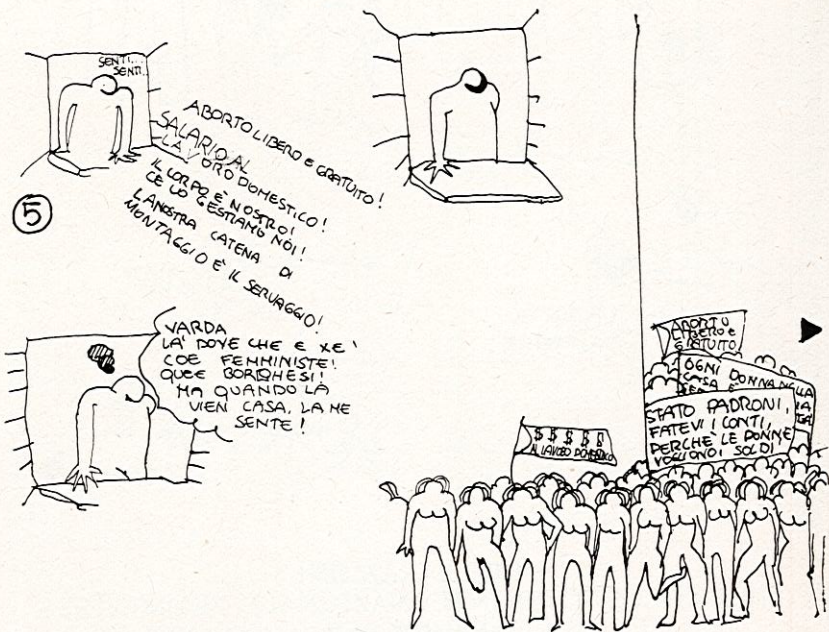 SENTI...
SENTI..
ABORTO LIBERO E GRATUITO!
SALARIO AL
LAVORO DOMESTICO!
IL CORPO È NOSTRO!
CE LO GESTIAMO NOI!
LA NOSTRA CATENA DI
MONTAGGIO È IL SERVAGGIO!
5
VARDA
LA' DOVE CHE E XE'
COE FEMMINISTE!
QUEE BORGHESI!
MA QUANDO LA
VIEN CASA, LA ME
SENTE!
ABORTO
LIBERO E
GRATUITO
OGNI DONNA NELLA
CASA È
STATO PADRONI,
FATEVI I CONTI,
PERCHÈ LE DONNE
VOGLIONO I SOLDI
$ $ $ $ $
AL LAVORO DOMESTICO